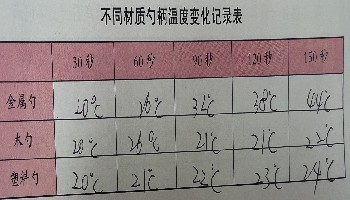 不同材质勺柄温度变化记录表
30秒 60秒 90秒 120秒 150秒
金属勺 20℃ 32℃ 38℃ 44℃
木勺 20℃ 21℃ 21℃ 22℃
塑料勺 20℃ 21℃ 22℃ 23℃ 24℃